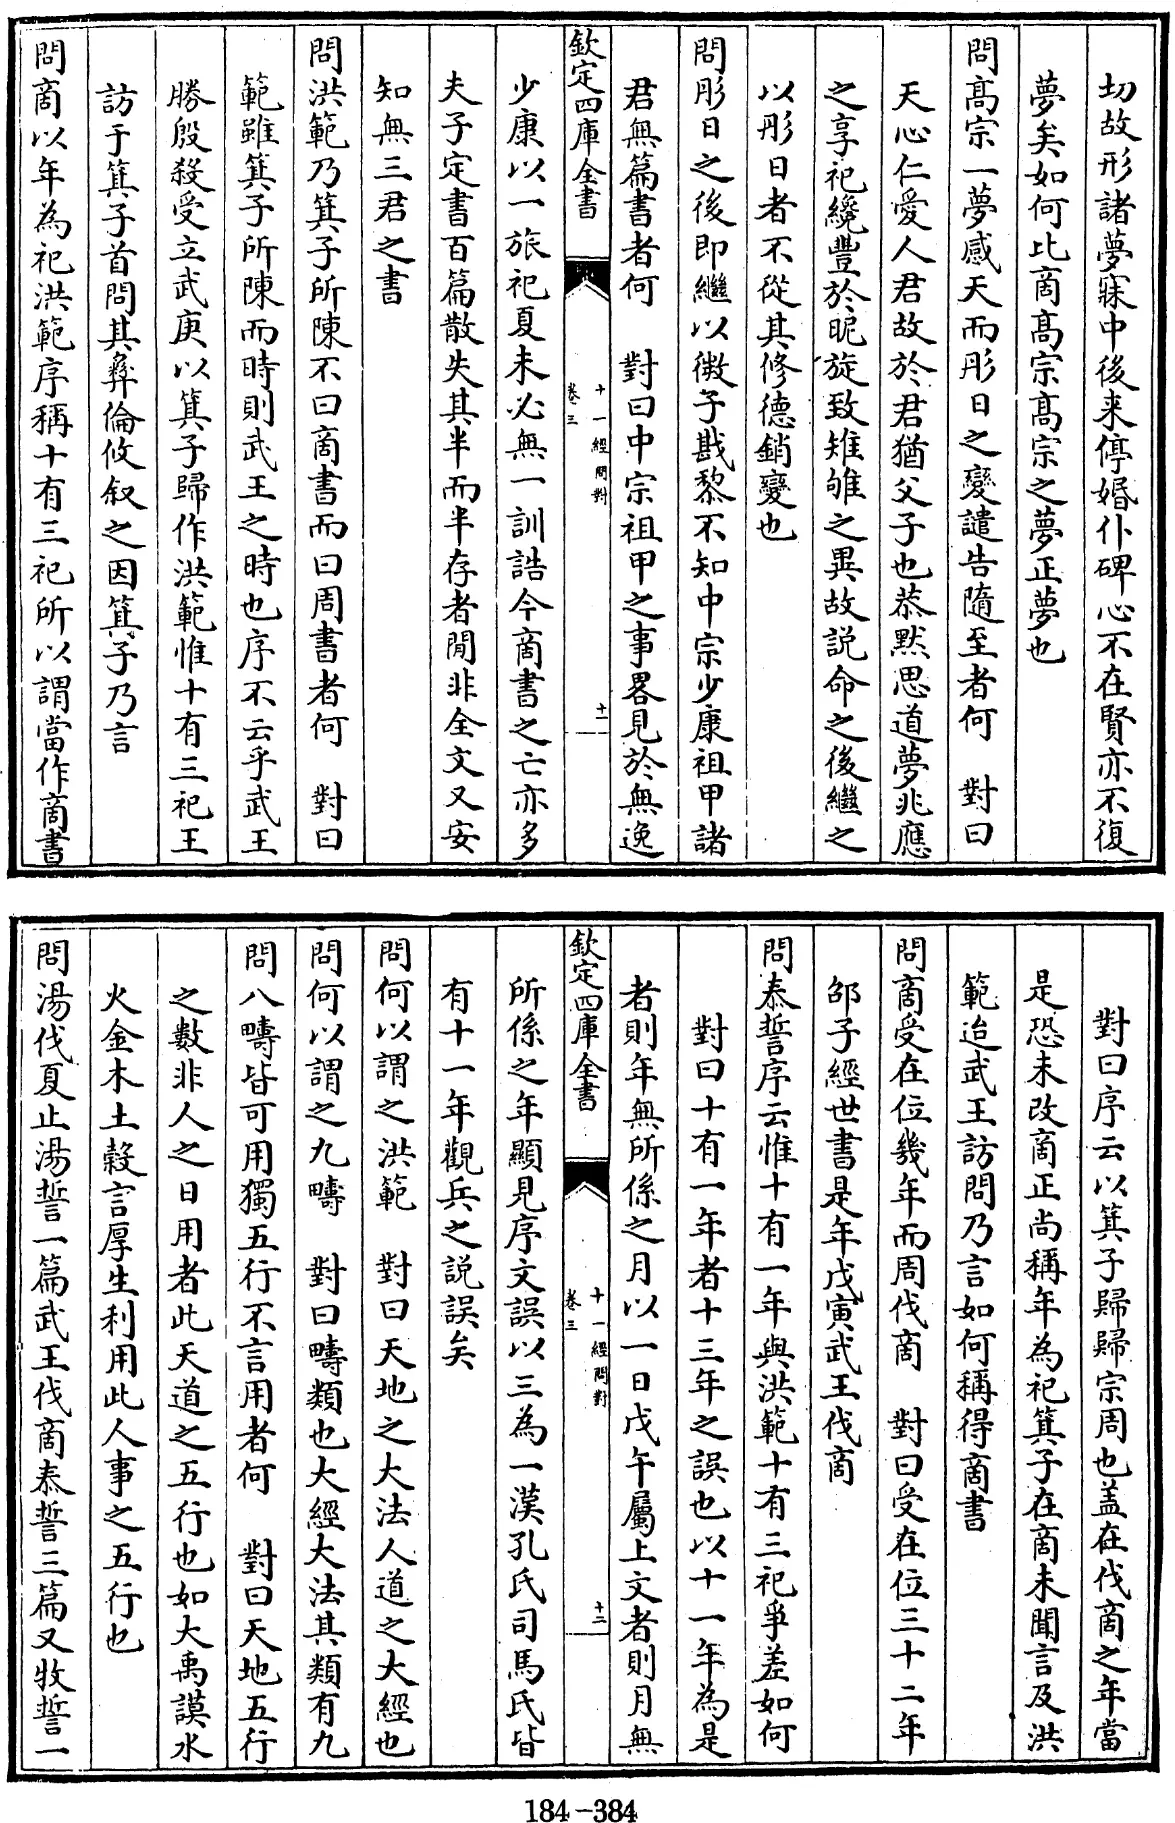 切故形諸夢寐中後来停婚仆碑心不在賢亦不復
夢矣如何比商髙宗髙宗之夢正夢也
問髙宗一夢感天而肜日之變譴告隨至者何　對曰
天心仁愛人君故於君猶父子也恭黙思道夢兆應
之享祀纔豐於昵旋致雉雊之異故説命之後繼之
以肜日者不從其修德銷變也
問肜日之後即繼以微子戡黎不知中宗少康祖甲諸
君無篇書者何　對曰中宗祖甲之事畧見於無逸
欽定四庫全書
十一經問對
卷三
十一
少康以一旅祀夏未必無一訓誥今商書之亡亦多
夫子定書百篇散失其半而半存者間非全文又安
知無三君之書
問洪範乃箕子所陳不曰商書而曰周書者何　對曰
範雖箕子所陳而時則武王之時也序不云乎武王
勝殷殺受立武庚以箕子歸作洪範惟十有三祀王
訪于箕子首問其彛倫攸叙之因箕子乃言
問商以年為祀洪範序稱十有三祀所以謂當作商書
對曰序云以箕子歸歸宗周也盖在伐商之年當
是恐未改商正尚稱年為祀箕子在商未聞言及洪
範迨武王訪問乃言如何稱得商書
問商受在位幾年而周伐商　對曰受在位三十二年
邵子經世書是年戊寅武王伐商
問泰誓序云惟十有一年與洪範十有三祀爭差如何
對曰十有一年者十三年之誤也以十一年為是
者則年無所係之月以一日戊午屬上文者則月無
欽定四庫全書
十一經問對
卷三
十二
所係之年顯見序文誤以三為一漢孔氏司馬氏皆
有十一年觀兵之説誤矣
問何以謂之洪範　對曰天地之大法人道之大經也
問何以謂之九疇　對曰疇類也大經大法其類有九
問八疇皆可用獨五行不言用者何　對曰天地五行
之數非人之日用者此天道之五行也如大禹謨水
火金木土穀言厚生利用此人事之五行也
問湯伐夏止湯誓一篇武王伐商泰誓三篇又牧誓一
184-384